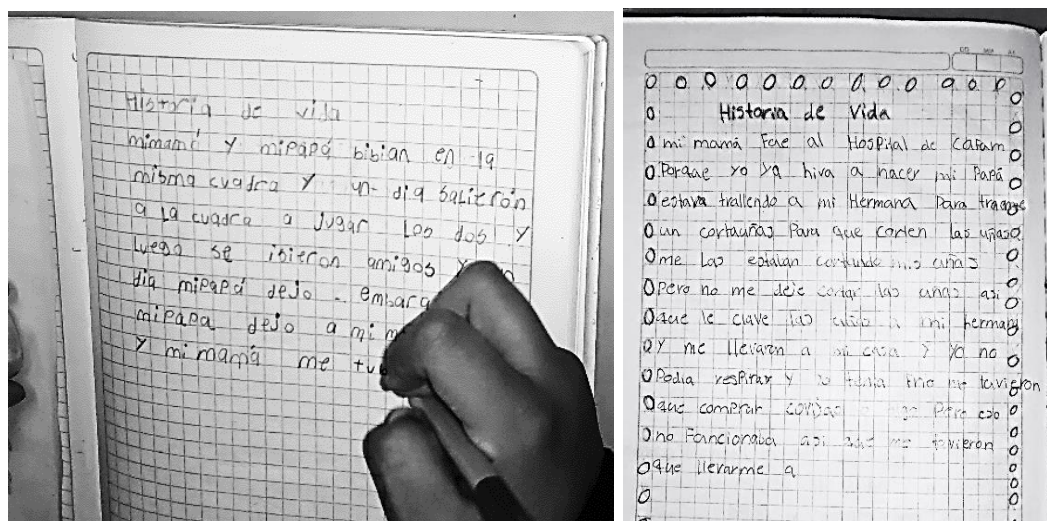 Historia de vida
mimamá y mipapá bibian en la
misma cuadra y un dia salierón
a la cuadra a jugar los dos y
luego se isieron amigos y
dia mipapá dejo
mipapa dejo a mi
y mi mamá me
Historia de Vida
mi mamá Fue al Hospital de cafam
Porque yo ya hiva a nacer mi Papá
estava trallendo a mi Hermana Para
un cortauñas Para que corten las uñas
me las uñas
Pero no me deje cortar las uñas asi
que le clave las a mi
y me llevaron a mi casa y yo no
Podia respirar y tenia frio me tuvieron
que comprar Pero eso
no Funcionaba asi que me tuvieron
que llevarme a